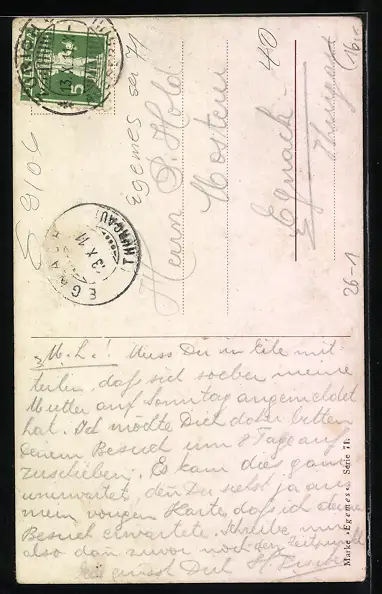 5
EGNACH
13 X 11
(THURGAU)
S 9106
Egemes ser 71
40
16,-
26-1
Herrn P. Hold
Mostern
Egnach
Thurgau
M. L.! Muss Du in Eile mit-
teilen, daß sich soeben meine
Mutter auf Sonntag angemeldet
hat. Ich möchte Dich daher bitten
Deinen Besuch um 8 Tage auf
zuschieben. Es kam dies ganz
unerwartet, denn Du siehst ja an
mein vorigen Karte daß ich deinen
Besuch erwartete. Schreibe mir
also dan zuvor noch den Zeitpunkt
es grüsst Dich H.
Marke »Egemes« Série 71.